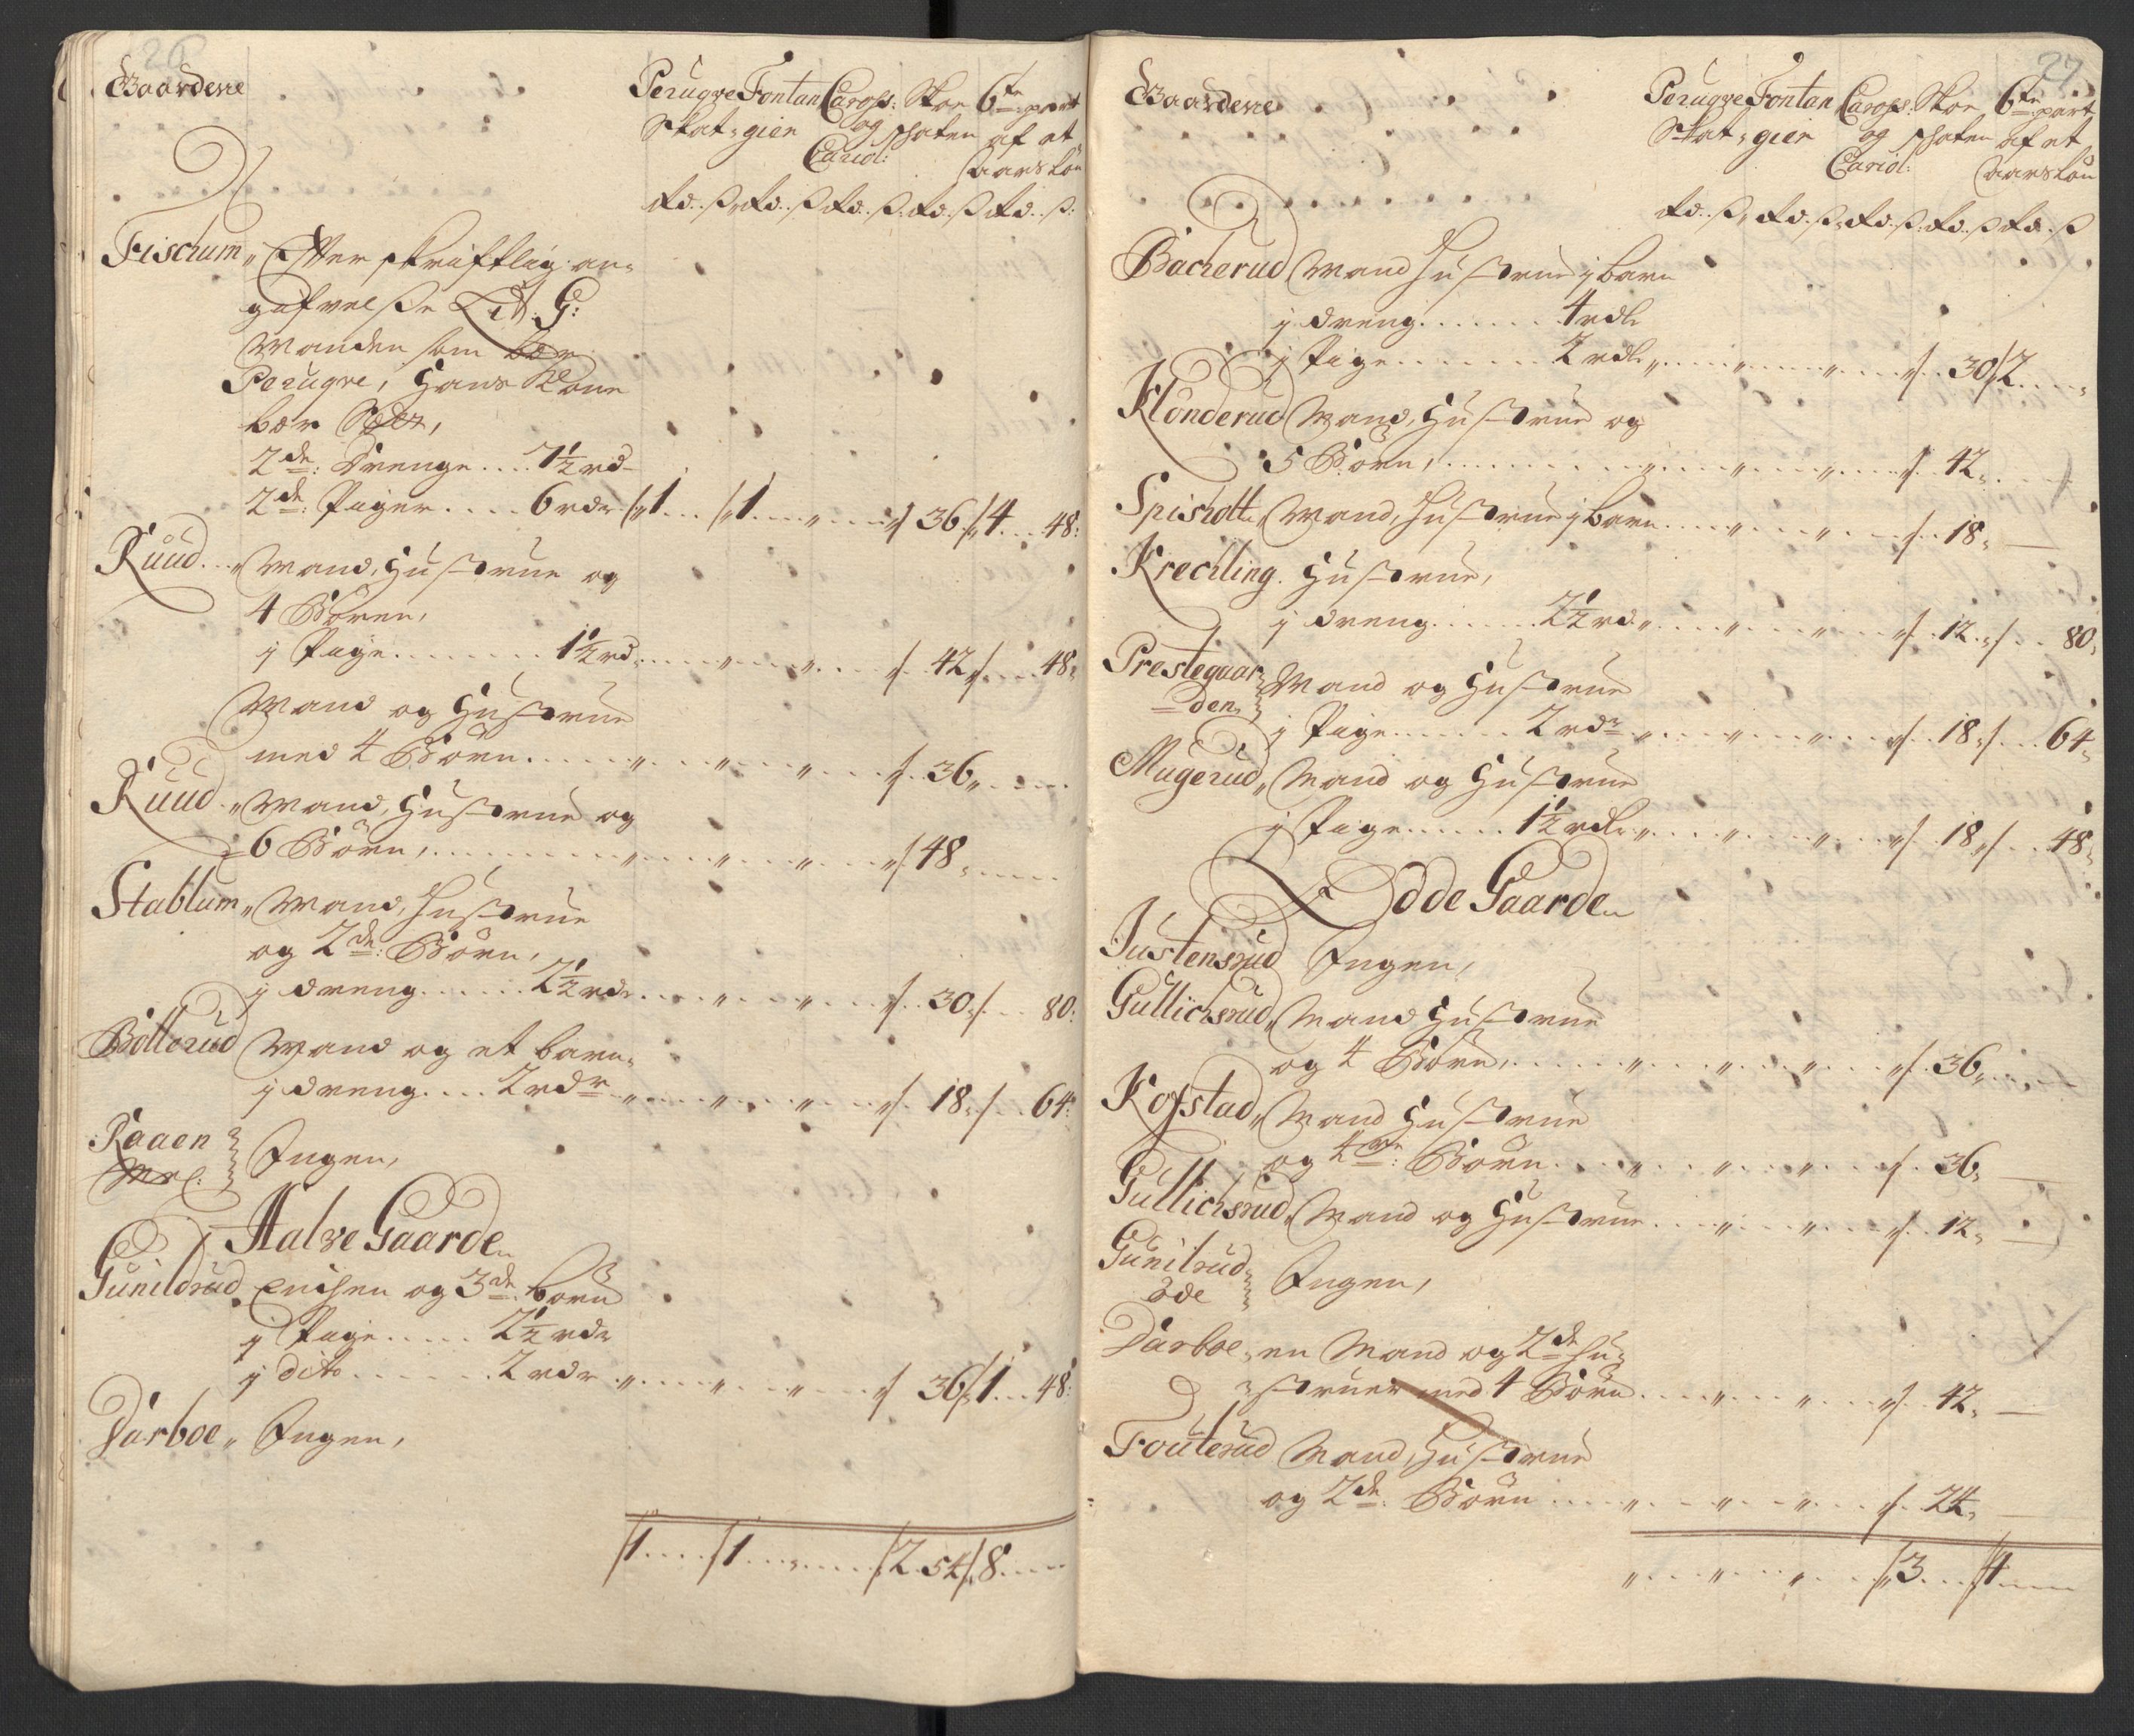 26
Gaardene
Perugve Fontan Caroſs: Skoe 6te part
Skat- gien og skaten af et
Cariol: Aars Løn
rd..ß, rd..ß rd..ß: rd..ß rd..ß:
Fischum „ Efter skriftlig an-
gifvelße Lit. G:
Manden som bær
Perugve, Hans Kone
bær
2de: Drenge .... 7½ rd
2de: Piger .... 6 rdr 1 ... 1 .... „ .... 36 4 ... 48:
Ruud .. „ Mand, Hustrue og
4 Børen,
j Pige ....... 1½ rd „ .... „ ... „ .... 42 .... 48 „
Mand og Hustrue
med 4 Børn ..... „ ... „ ... „ ... 36 „ ....
Ruud .. „ Mand, Hustrue og
6 Børn, ......... „ ... „ ... „ ... 48 „ .....
Stablum „ Mand, Hustrue
og 2de: Børn,
j dreng ...... 2½ rdr .... „ ... „ ... 30 „ ... 80:
Bøtterud Mand og et barn „
j dreng .... 2 rdr „ .... „ ... „ ... 18 „ ... 64:
Raaen
Ingen,
Halve Gaarde
Gunildrud Enchen og 3de børn
j Pige ..... 2½ rdr
j dito ...... 2 rdr „ .... „ ... „ ... 36 1 ... 48:
Darboe „ Ingen,
1 .... 1 .... „ .... 2.54 8 ....
27
Gaardene
Perugve Fontan Caroſs: Skoe 6te part
Skat- gien og skaten af et
Cariol: Aars Løn
rd..ß, rd..ß, rd..ß: rd..ß rd..ß
Bacherud Mand Hustrue j barn
j dreng ....... 4 rdlr
j Pige ........ 2 rdlr „ .... „ ... „ ... 30 2 ....
Klonderud Mand, Hustrue og
5 Børn, ......... „ ... „ ... „ ... 42 „ ....
Spishott „ Mand, Hustrue j barn .... „ ... „ ... 18 „
Krechling . Hustrue,
j dreng ..... 2½ rd „ .... „ ... „ ... 12 „ ... 80 „
Prestegaar
den
Mand og Hustrue
j Pige ...... 2 rdr „ .... „ ... „ ... 18 „ ... 64 „
Mugerud „ Mand og Hustrue
j Pige ..... 1½ rdlr „ .... „ ... „ ... 18 „ ... 48 „
Ødde Gaarde
Justensrud Ingen,
Gullichsrud „ Mand Hustrue
og 4 Børn, ..... „ ... „ ... „ ... 36 „ ....
Kofstad „ Mand Hustrue
og 4re: Børn .... „ ... „ ... „ ... 36 „
Gullichsrud „ Mand og Hustrue .... „ ... „ ... 12 „
Gunilrud
øde
Ingen,
Darboe „ en Mand og 2de Hu-
struer med 4 Børn .... „ ... „ ... 42 „
Fouterud Mand, Hustrue
og 2de: Børn .... „ ... „ ... „ ... 24 „
„ .... „ .... „ .... 3 ... 4 ....